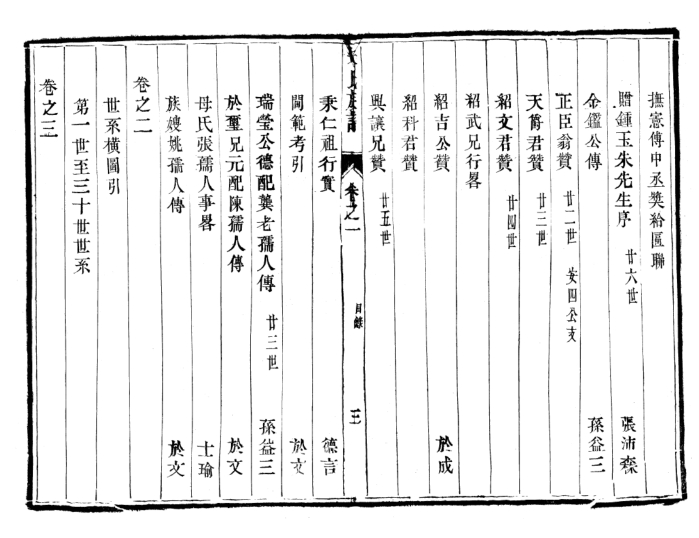 撫憲傅中丞獎給匾聯
贈鍾玉朱先生序 廿六世 張沛森
金鑑公傳 孫益三
正臣翁贊 廿二世 安四公支
天爵君贊 廿三世
紹文君贊 廿四世
紹武兄行畧
紹吉公贊 於成
紹科君贊
興讓兄贊 廿五世
卷之一 目錄 三
秉仁祖行實 德言
閫範考引 於文
瑞瑩公德配龔老孺人傳 廿三世 孫益三
於璽兄元配陳孺人傳 於文
母氏張孺人事畧 士瑜
族嫂姚孺人傳 於文
卷之二
世系橫圖引
第一世至三十世世系
卷之三